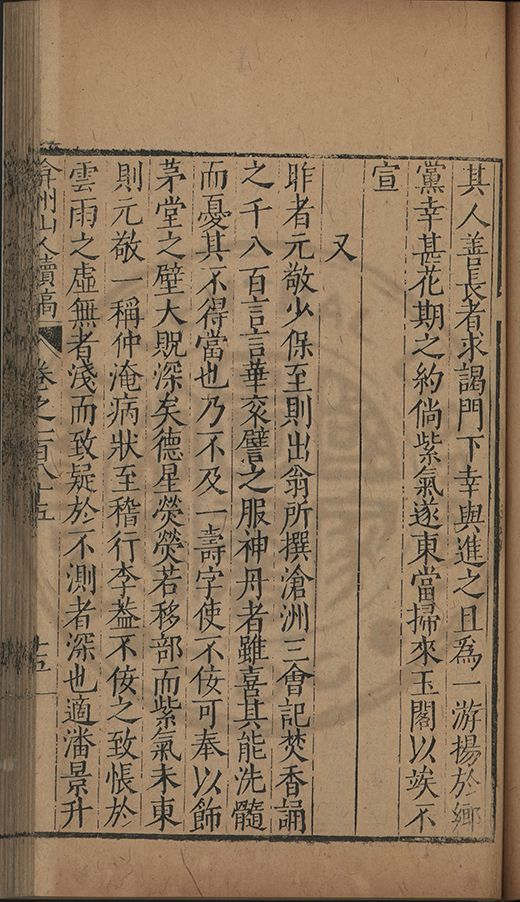 其人善長者求謁門下幸與進之且爲一游揚於鄉
黨幸甚花期之約倘紫氣遂東當掃來玉閣以竢不
宣
又
昨者元敬少保至則出翁所撰滄洲三會記焚香誦
之千八百言言華衮譬之服神丹者雖喜其能洗髓
而憂其不得當也乃不及一壽字使不佞可奉以飾
茅堂之壁大貺深矣德星熒熒若移部而紫氣未東
則元敬一稱仲淹病狀至稽行李益不佞之致悵於
雲雨之虛無者淺而致疑於不測者深也適潘景升
弇州山人續稿 卷之一百八十五 十五